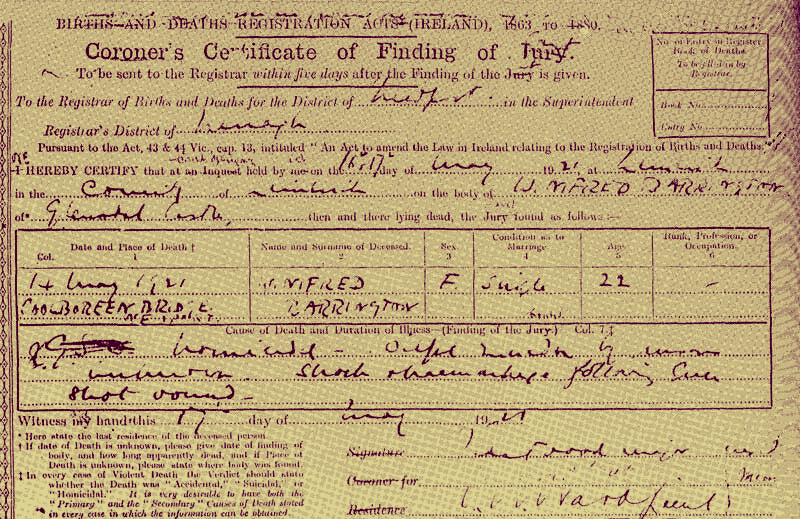 BIRTHS AND DEATHS REGISTRATION ACTS (IRELAND), 1863 TO 1880.
Coroner's Certificate of Finding of Jury.
To be sent to the Registrar within five days after the Finding of the Jury is given.
No. of Entry in Register Book of Deaths.
To be filled in by Registrar.
Book No.
Entry No.
To the Registrar of Births and Deaths for the District of Newport in the Superintendent
Registrar's District of Nenagh
Pursuant to the Act, 43 & 44 Vic., cap. 13, intituled "An Act to amend the Law in Ireland relating to the Registration of Births and Deaths,"
I HEREBY CERTIFY that at an Inquest held by me on the 16 & 17 day of May 1921 at Limerick
in the County of Limerick on the body of WINIFRED BARRINGTON
of Glenstal Castle, then and there lying dead, the Jury found as follows:—
Col. Date and Place of Death † 1
Name and Surname of Deceased. 2
Sex. 3
Condition as to Marriage 4
Age. 5
Rank, Profession, or Occupation. 6
14 May 1921 WINIFRED F. Single 22 —
COOLBOREEN BRIDGE BARRINGTON
Cause of Death and Duration of Illness—(Finding of the Jury.) Col. 7.‡
Homicidal — Wilful murder by persons
unknown. Shock & haemorrhage following Gun
shot wound —
Witness my hand this 17 day of May 1921
* Here state the last residence of the deceased person.
† If date of Death is unknown, please give date of finding of
body, and how long apparently dead, and if Place of
Death is unknown, please state where body was found.
‡ In every case of Violent Death the Verdict should state
whether the Death was "Accidental," "Suicidal," or
"Homicidal." It is very desirable to have both the
"Primary" and the "Secondary" Causes of Death stated
in every case in which the information can be obtained.
Signature Major
Coroner for
Residence